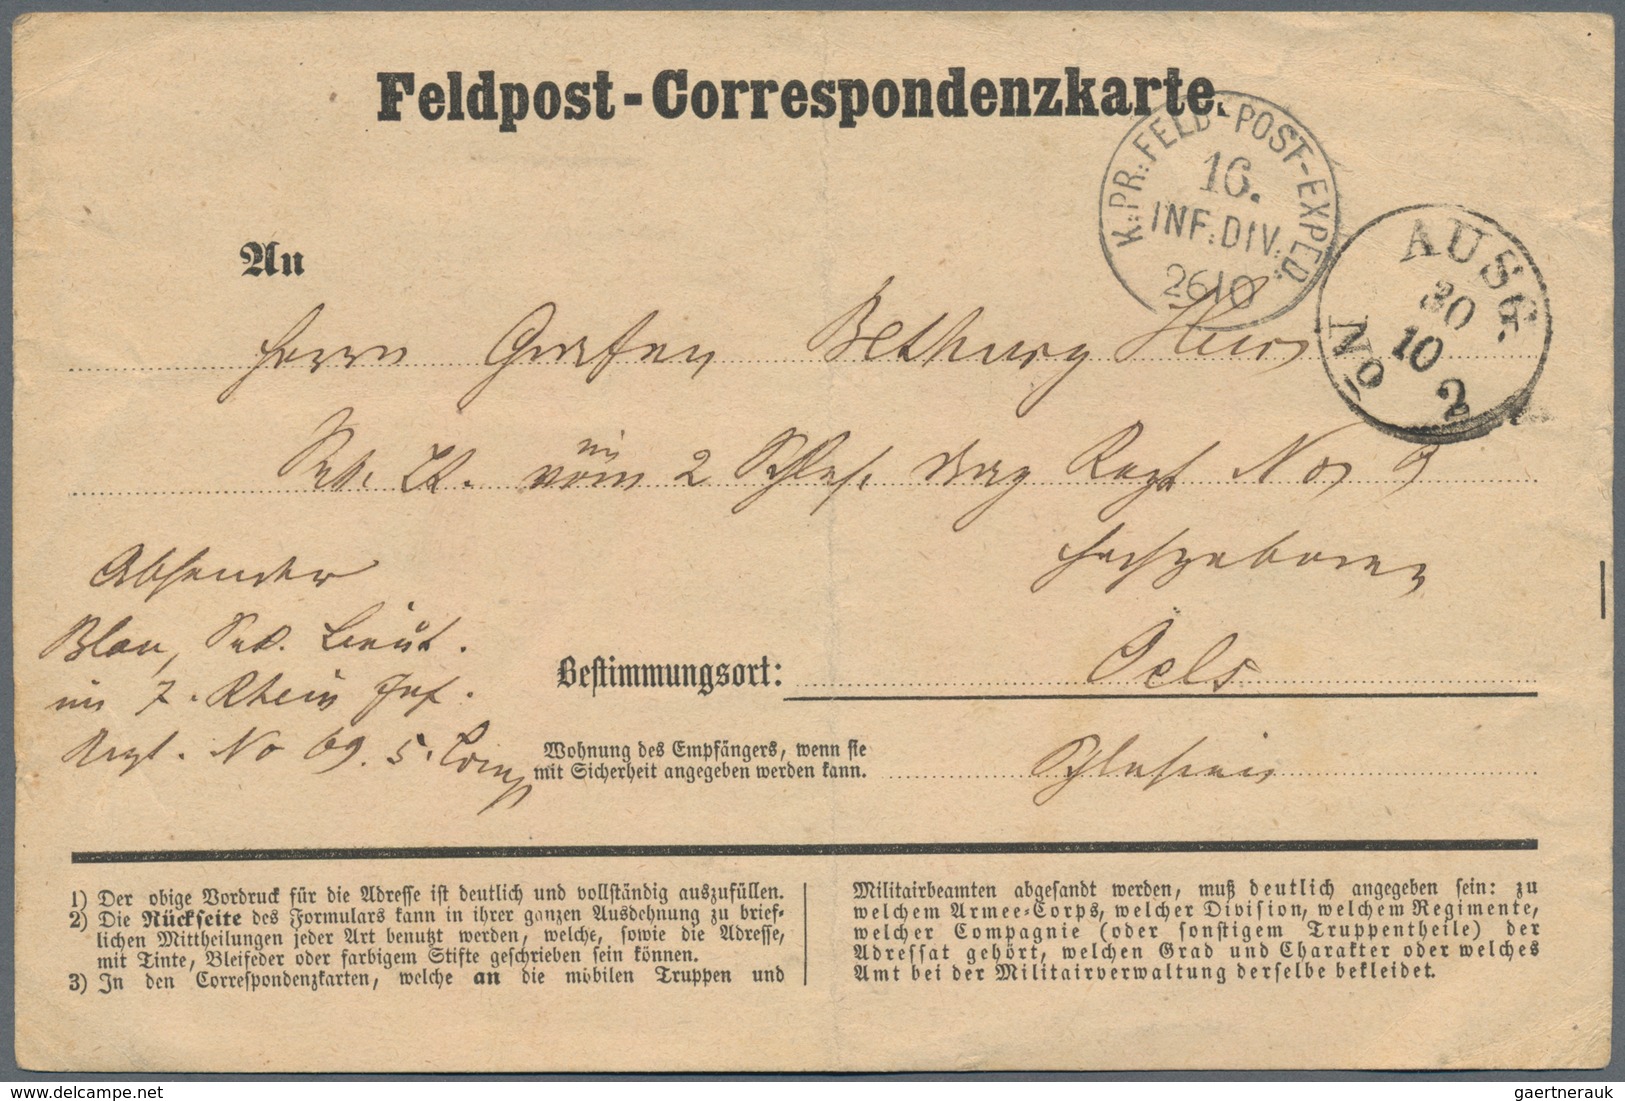 Feldpost-Correspondenzkarte.
K:PR:FELD-POST-EXPED:
16.
INF:DIV:
26 10
AUSG.
30
10
No 2
An
Herrn Grafen Bethusy Huc
im
Sec. Lt. vom 2 Schles. Drag Regt No 8
Hochgeboren
Absender
Blau, Sec. Lieut.
im 7. Rhein Inf.
Regt. No 69. 5. Comp
Bestimmungsort: Oels
Wohnung des Empfängers, wenn sie
mit Sicherheit angegeben werden kann. Schlesien
1) Der obige Vordruck für die Adresse ist deutlich und vollständig auszufüllen.
2) Die Rückseite des Formulars kann in ihrer ganzen Ausdehnung zu brief-
lichen Mittheilungen jeder Art benutzt werden, welche, sowie die Adresse,
mit Tinte, Bleifeder oder farbigem Stifte geschrieben sein können.
3) In den Correspondenzkarten, welche an die mobilen Truppen und
Militairbeamten abgesandt werden, muß deutlich angegeben sein: zu
welchem Armee-Corps, welcher Division, welchem Regimente,
welcher Compagnie (oder sonstigem Truppentheile) der
Adressat gehört, welchen Grad und Charakter oder welches
Amt bei der Militairverwaltung derselbe bekleidet.
www.delcampe.net
gaertnerauk